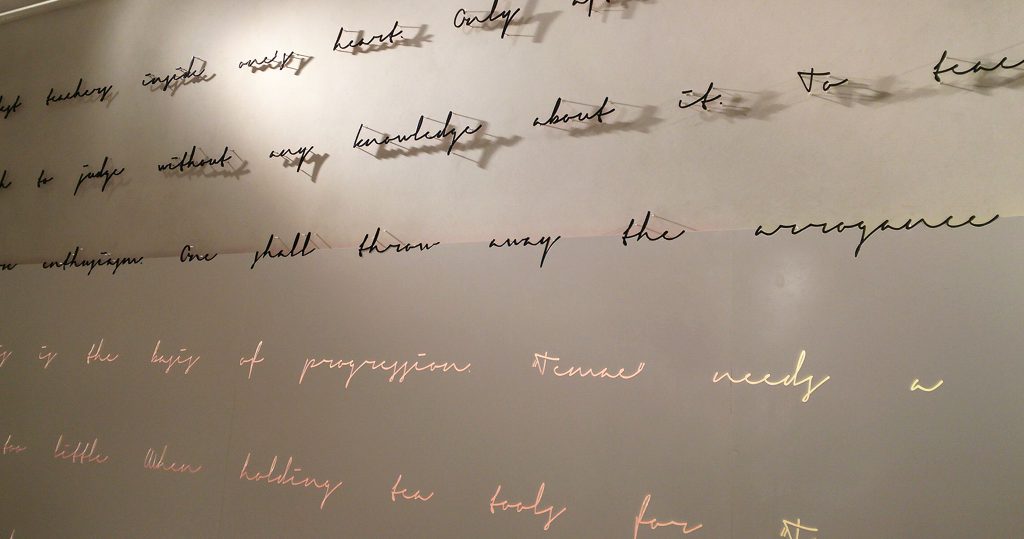 teachers inside one's heart. Only
to judge without any knowledge about it. To
enthusiasm. One shall throw away the arrogance
is the basis of progression. "Temae" needs a
too little When holding tea tools for